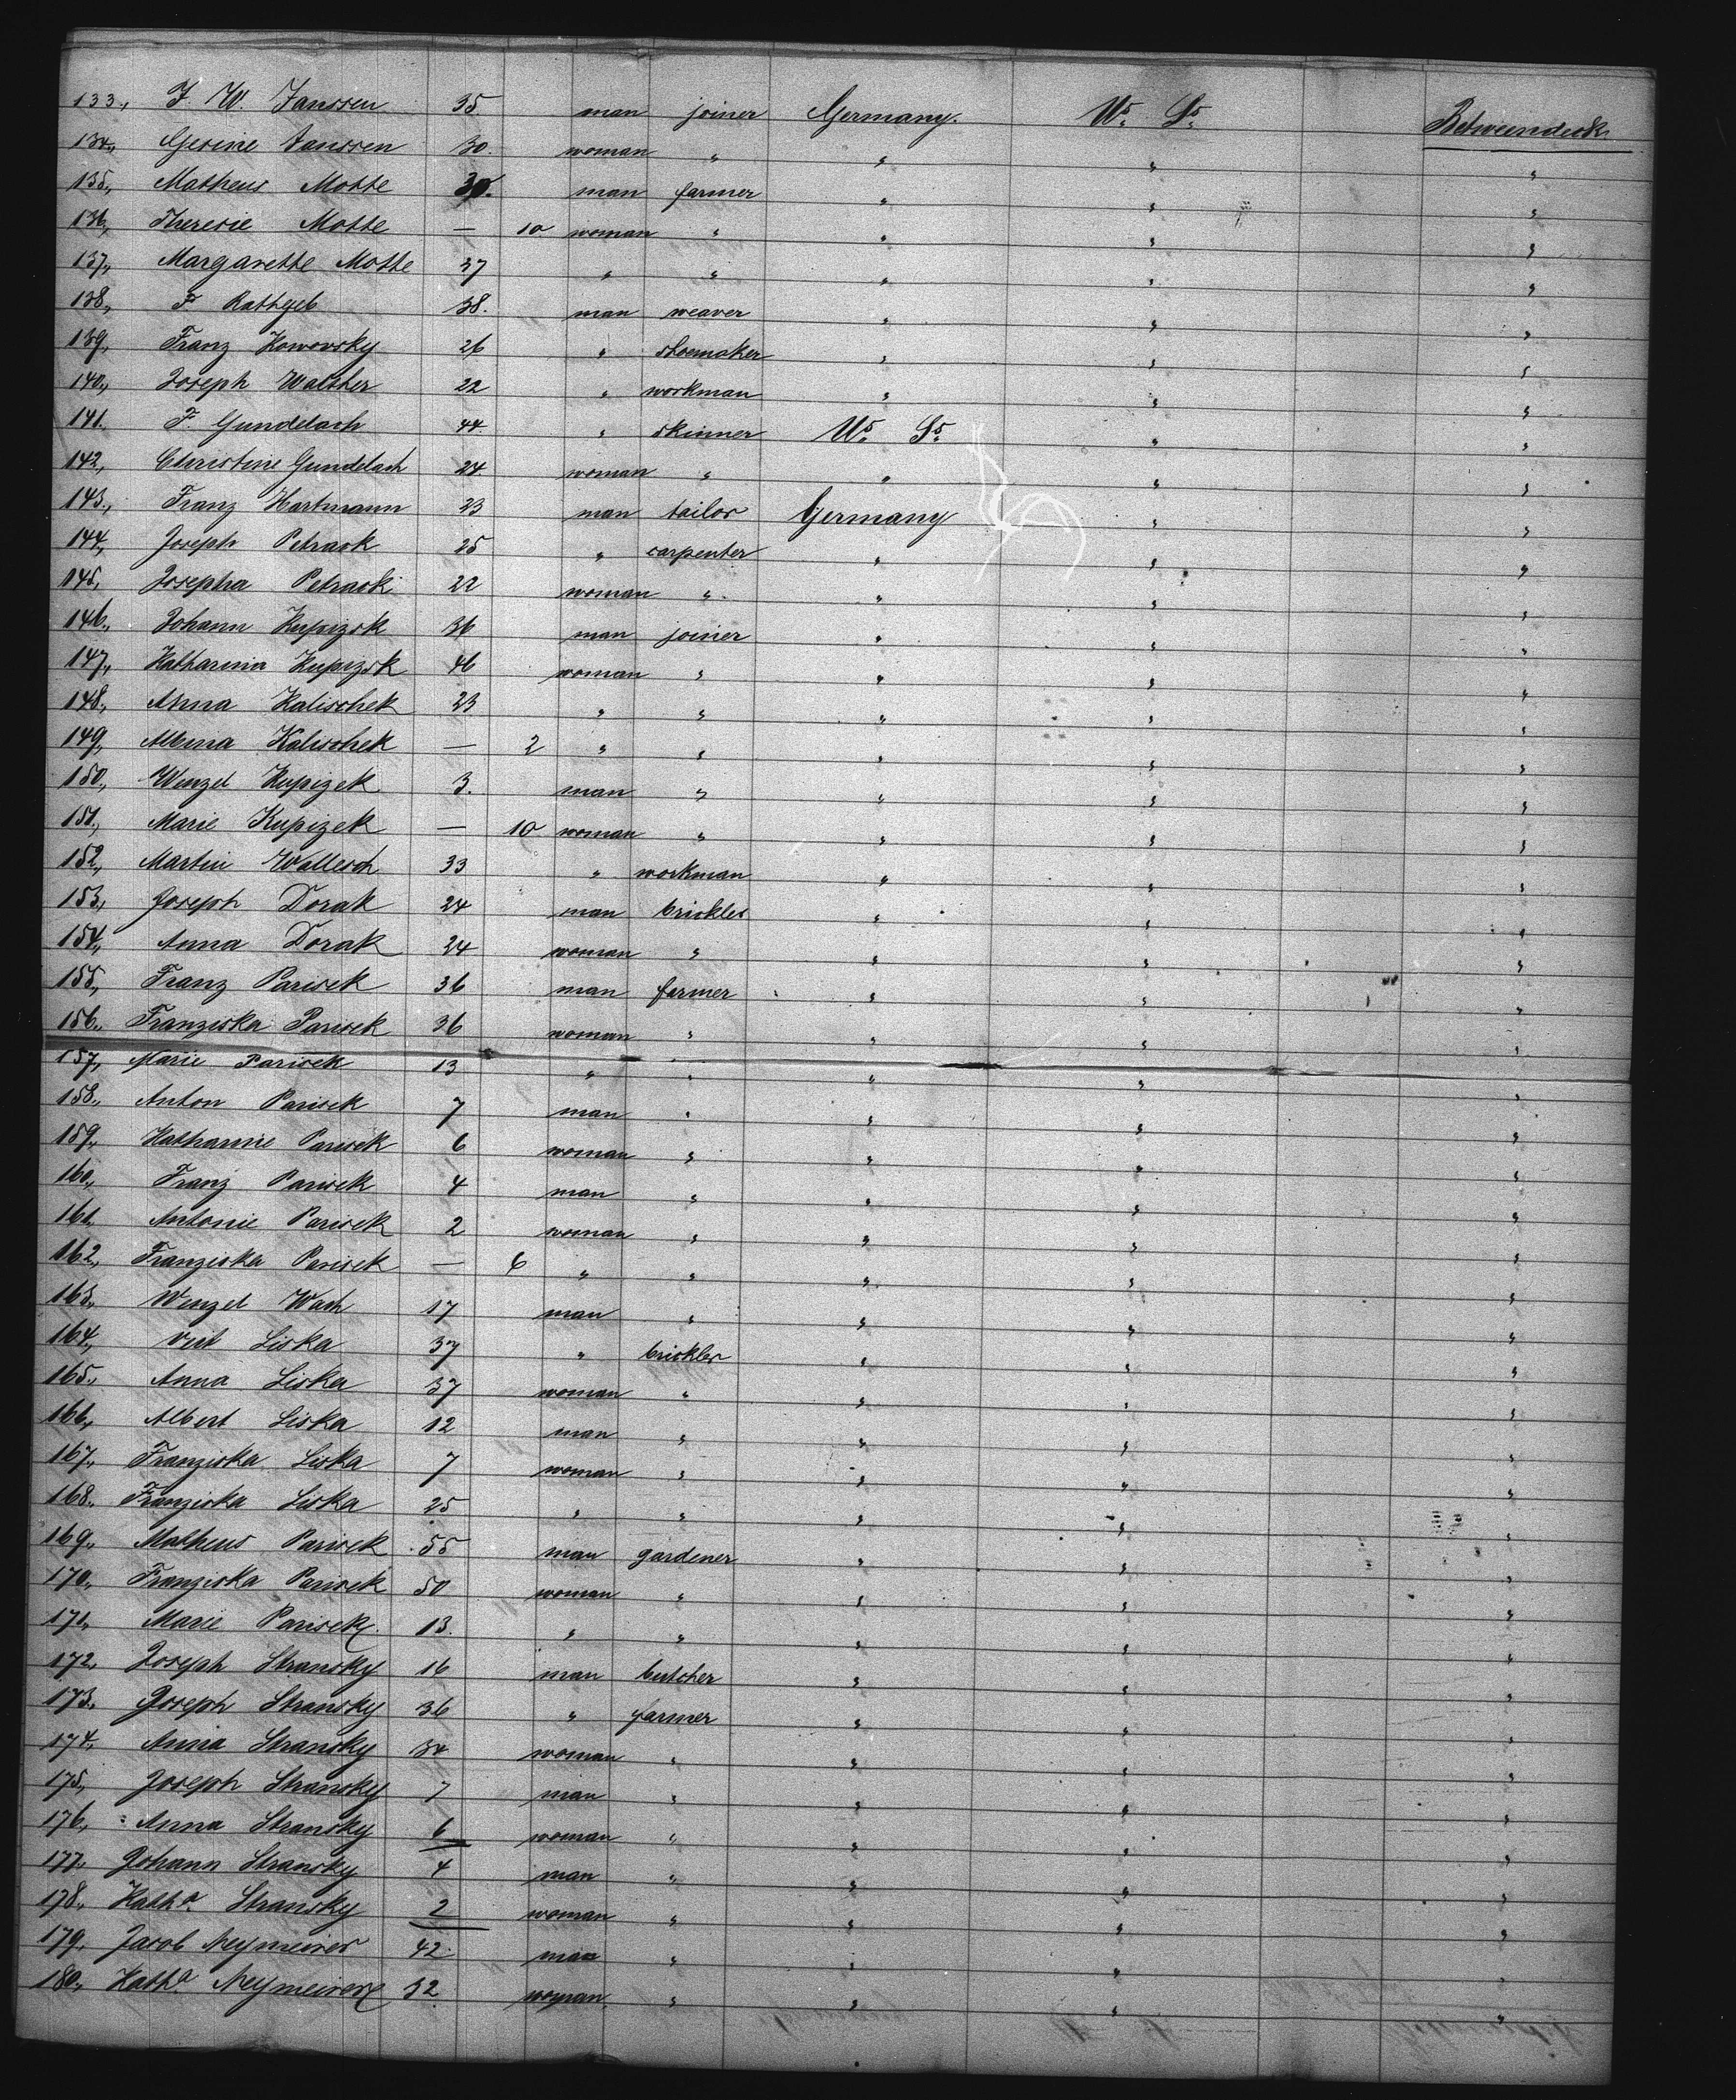 133., J. W. Janssen 35. man joiner Germany. Us. Ss. Betweendeck
134., Gesine Janssen 30. woman " " " "
135., Matheus Motte 30. man farmer " " "
136., Theresie Motte — 10 woman " " " "
137., Margarethe Motte 37 " " " " "
138., F. Rathgeb 38. man weaver " " "
139., Franz Kowovsky 26 " shoemaker " " "
140., Joseph Walther 22 " workman " " "
141. F. Gundelach 44. " skinner Us. Ss. " "
142., Christine Gundelach 24. woman " " " "
143., Franz Hartmann 23 man tailor Germany " "
144., Joseph Petrack 25 " carpenter " " "
145., Josepha Petrack 22 woman " " " "
146., Johann Kupizek 36 man joiner " " "
147., Katharina Kupizek 46 woman " " " "
148., Anna Kalischek 23 " " " " "
149., Albina Kalischek — 2 " " " " "
150., Wenzel Kupizek 3. man " " " "
151., Marie Kupizek — 10 woman " " " "
152., Martin Wallesch 33 " workman " " "
153., Joseph Dorak 24 man brickler " " "
154., Anna Dorak 24 woman " " " "
155., Franz Parisek 36 man farmer " " "
156., Franziska Parisek 36 woman " " " "
157., Marie Parisek 13 " " " " "
158., Anton Parisek 7 man " " " "
159., Katharine Parisek 6 woman " " " "
160., Franz Parisek 4 man " " " "
161. Antonie Parisek 2 woman " " " "
162., Franziska Parisek — 6 " " " " "
163., Wenzel Wach 17 man " " " "
164., Veit Liska 37 " brickler " " "
165., Anna Liska 37 woman " " " "
166., Albert Liska 12 man " " " "
167., Franziska Liska 7 woman " " " "
168., Franziska Liska 25 " " " " "
169., Matheus Parisek 55 man gardener " " "
170., Franziska Parisek 50 woman " " " "
171., Marie Parisek. 13. " " " " "
172., Joseph Stransky 16 man butcher " " "
173., Joseph Stransky 36 " farmer " " "
174., Anna Stransky 34 woman " " " "
175., Joseph Stransky 7 man " " " "
176., Anna Stransky 6 woman " " " "
177., Johann Stransky 4 man " " " "
178., Katha. Stransky 2 woman " " " "
179., Jacob Neymeirer 42. man " " " "
180., Katha. Neymeirer 32 woman. " " " "